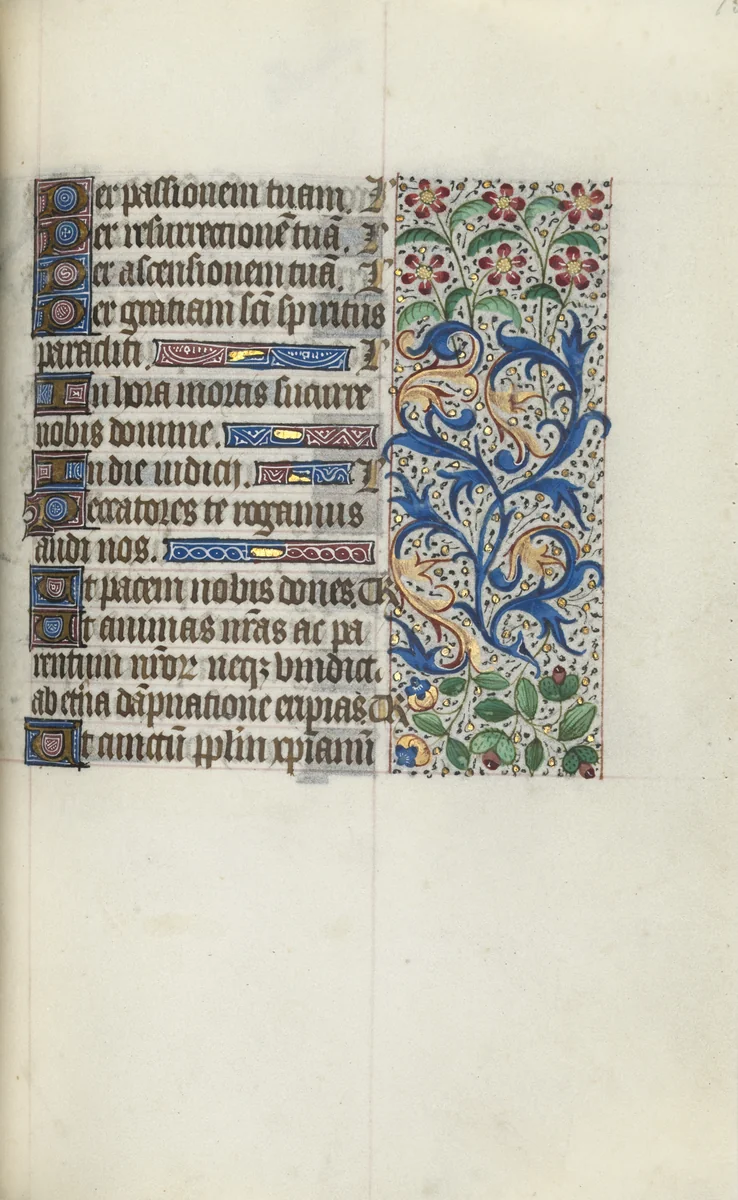 Per passionem tuam. L
Per resurrectionē tuā. L
Per ascensionem tuā. L
Per gratiam scī spiritus
paracliti. L
In hora mortis sucurre
nobis domine.
In die iudicij. L
Peccatores te rogamus
audi nos.
Ut pacem nobis dones. TR
Ut animas nr̄as ac pa
rentum nr̄oꝝ neqꝫ vindict.
ab et̄na dāpnatione eripias TR
Ut cunctū ppl̄m xp̄ianū